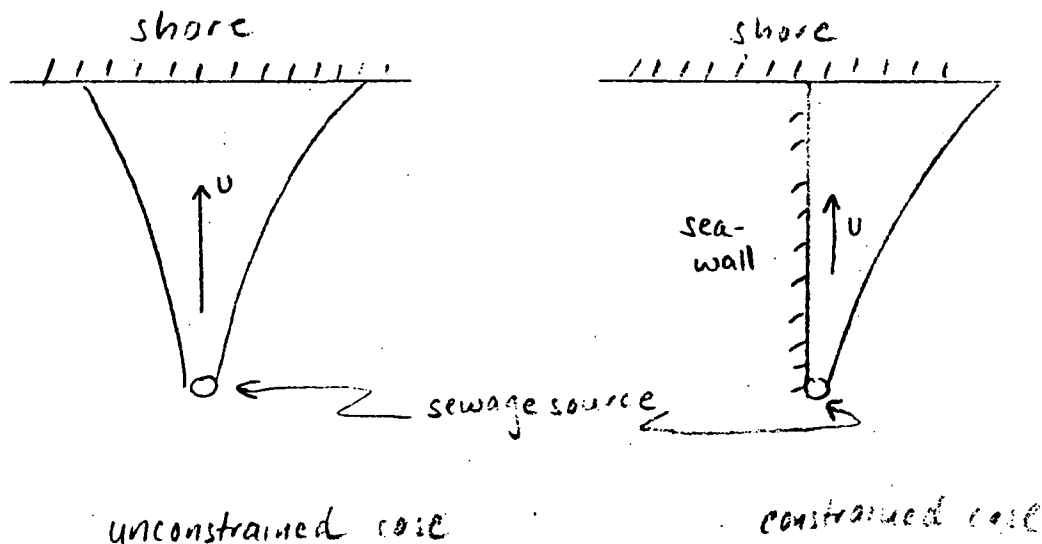 shore
shore
U
sea-
wall
U
sewage source
unconstrained case
constrained case